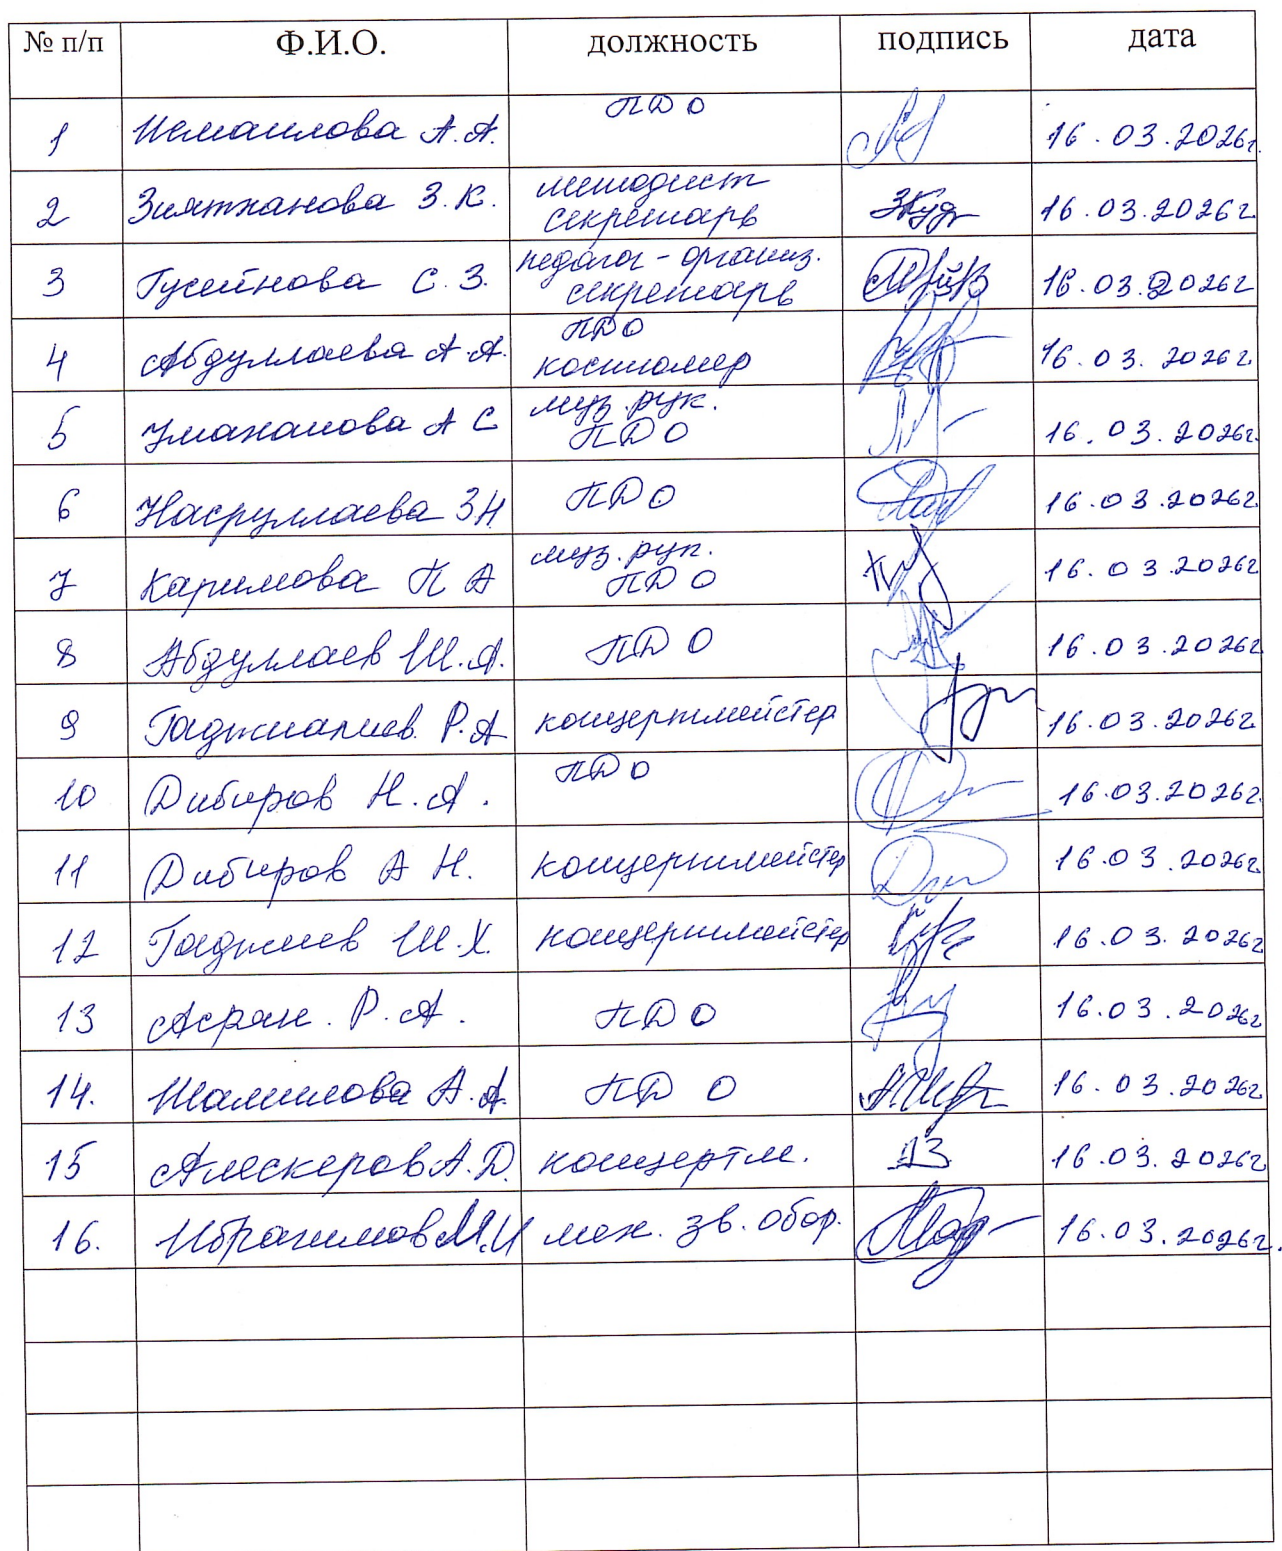 № п/п Ф.И.О. должность подпись дата
1 Исмаилова А.А. ПДО 16.03.2026г.
2 Зиятханова З.К. методист секретарь 16.03.2026г
3 Гусейнова С.З. педагог-организ. секретарь 16.03.2026г
4 Абдуллаева А.А. ПДО костюмер 16.03.2026г.
5 Умаханова А С муз.рук. ПДО 16.03.2026г.
6 Насруллаева З Н ПДО 16.03.2026г.
7 Каримова П А муз.рук. ПДО 16.03.2026г
8 Абдуллаев Ш.А. ПДО 16.03.2026г
9 Гаджиалиев Р.А концертмейстер 16.03.2026г
10 Дибиров Н.А. ПДО 16.03.2026г.
11 Дибиров А Н. концертмейстер 16.03.2026г.
12 Гаджиев Ш.Х. концертмейстер 16.03.2026г
13 Асран. Р.А. ПДО 16.03.2026г
14. Шамилова А.А ПДО 16.03.2026г
15 Алескеров А.Д. концертм. 16.03.2026г
16. Ибрагимов М.И мех. зв. обор. 16.03.2026г.